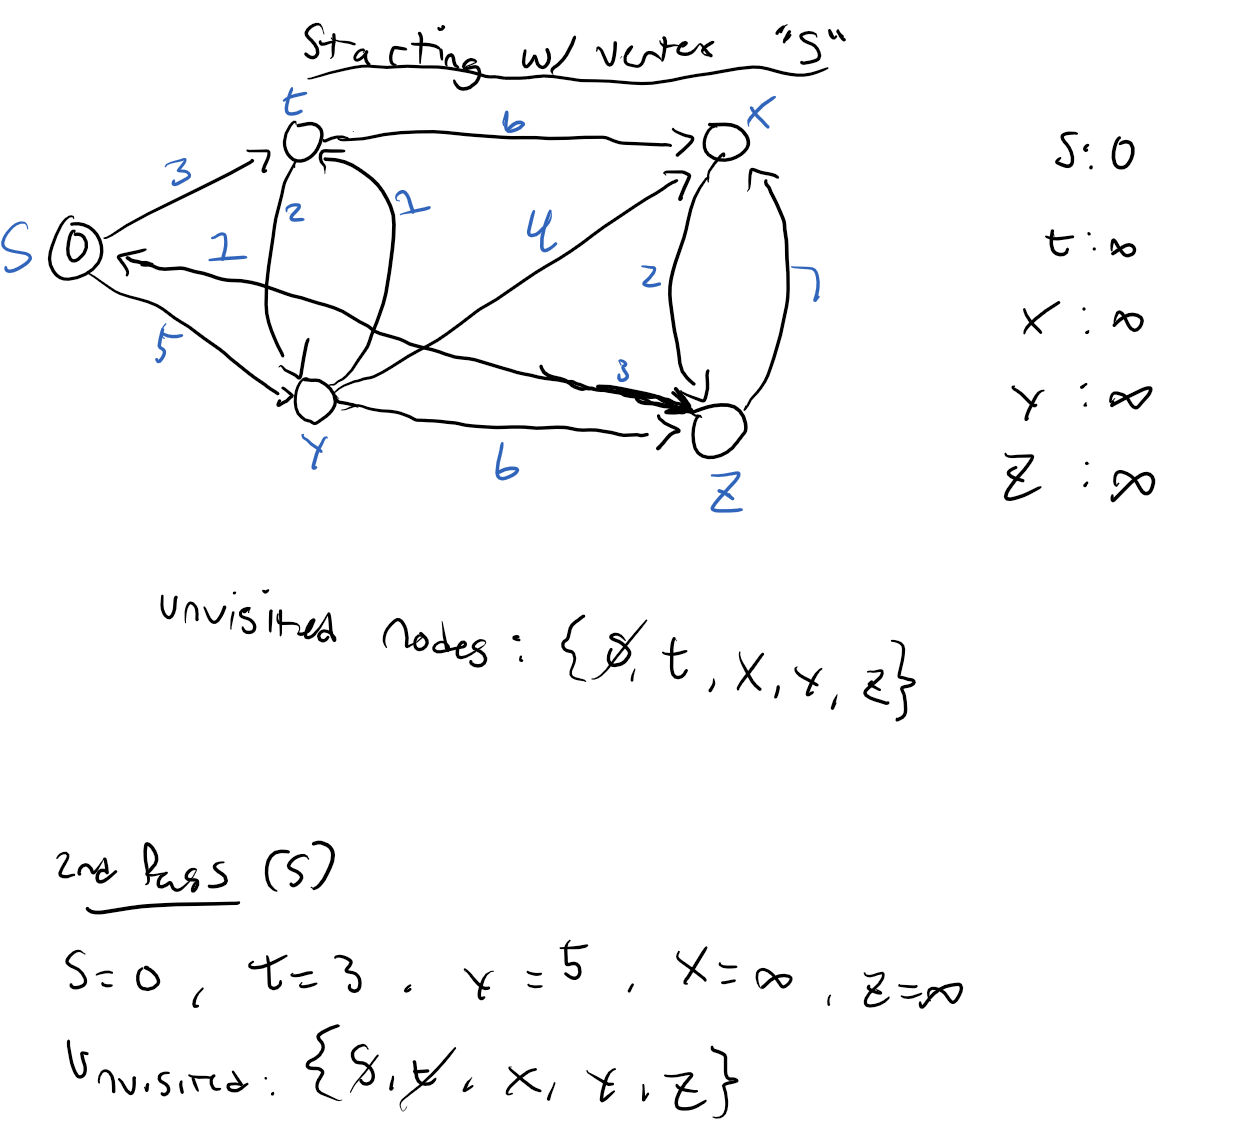 Starting w/ vertex "S"
t
6
X
3
S
0
2
1
1
4
2
7
5
3
Y
6
Z
S: 0
t : ∞
X : ∞
Y : ∞
Z : ∞
unvisited nodes: {S, t, X, Y, Z}
2nd Pass (S)
S=0, t=3, Y=5, X=∞, Z=∞
Unvisited: {S, t, X, Y, Z}